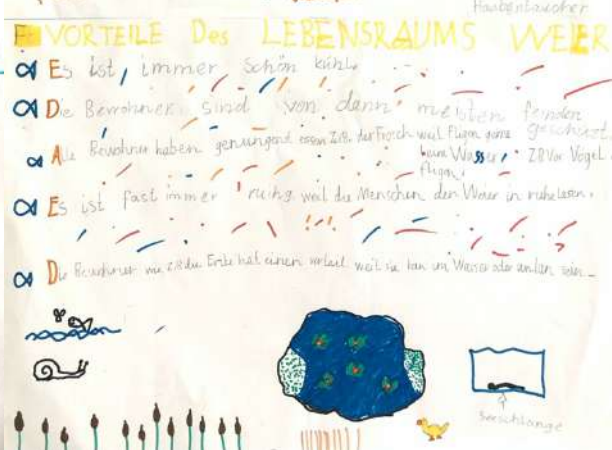 Haubentaucher
VORTEILE Des LEBENSRAUMS WEIER
Es ist immer schön kühl.
Die Bewohner sind von dann meisten feinden geschüzt.
Alle Bewohner haben genungend essen Z.B. der Frosch weil Fligen gerne beim Wasser fligen. ZB Vor Vogel.
Es ist fast immer ruhig weil die Menschen den Weier in ruhe lasen.
Die Bewohner wie z.B. die Ente hat einen vorteil weil sie kan um Wasser oder an Land sein
Seeschlange